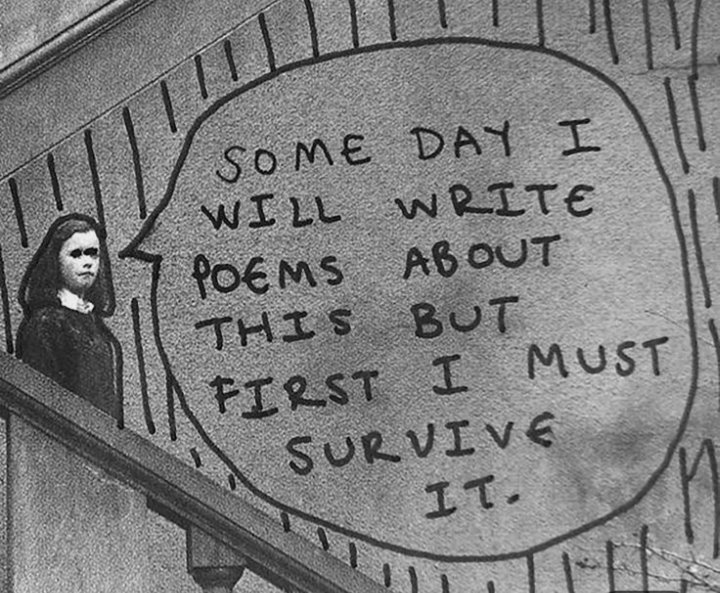 SOME DAY I
WILL WRITE
POEMS ABOUT
THIS BUT
FIRST I MUST
SURVIVE
IT.